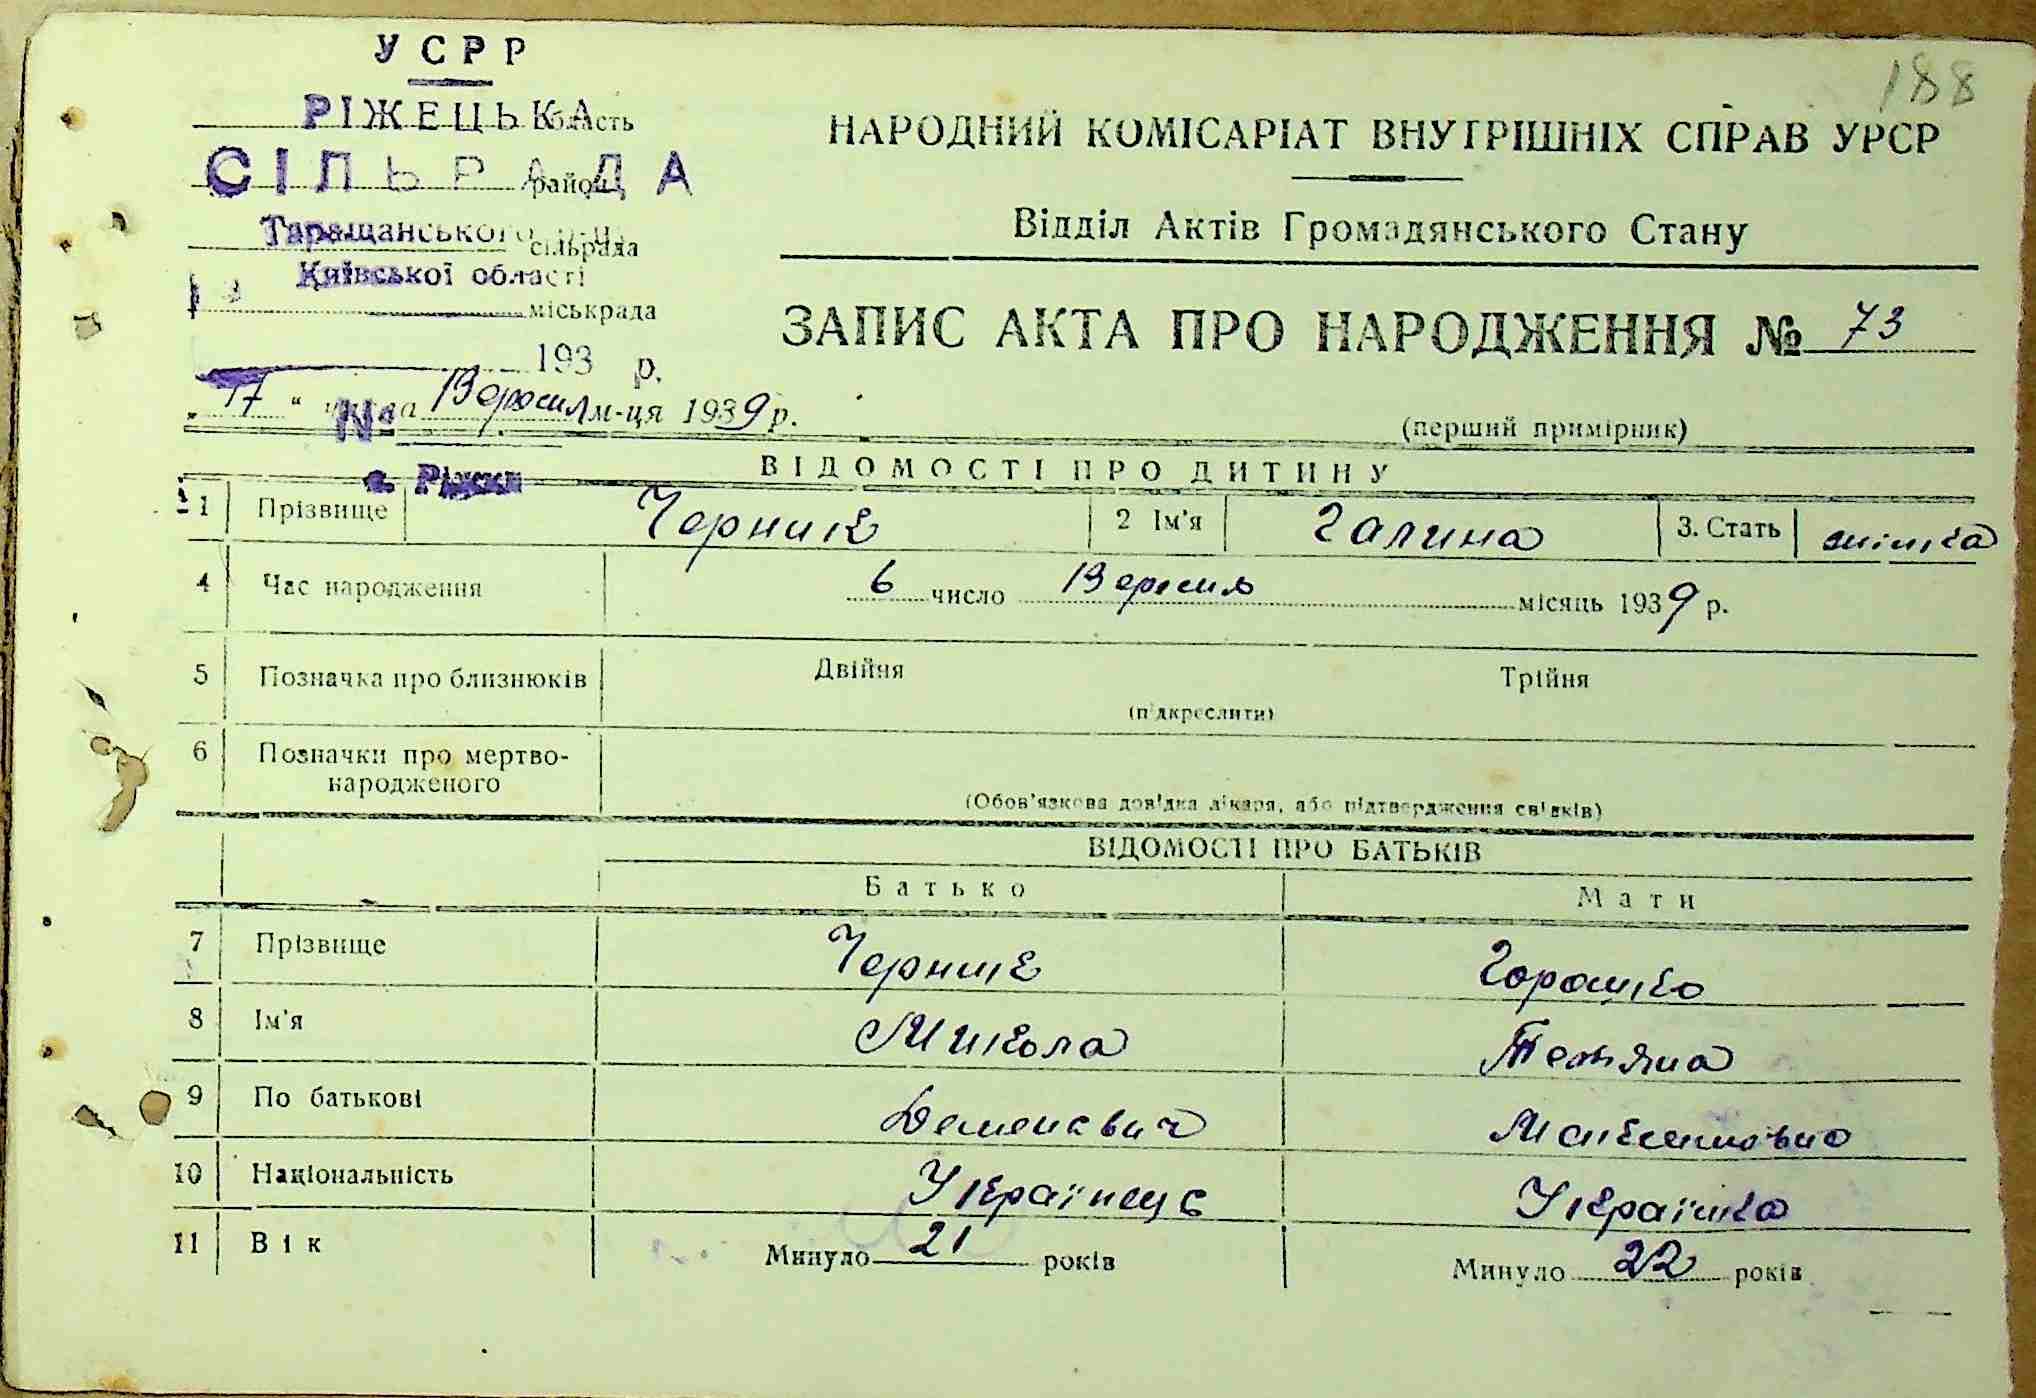 188
УСРР
РІЖЕЦЬКА область
СІЛЬРАДА район
Таращанського р-ну сільрада
Київської області
міськрада
193 р.
НАРОДНИЙ КОМІСАРІАТ ВНУТРІШНІХ СПРАВ УРСР
Відділ Актів Громадянського Стану
ЗАПИС АКТА ПРО НАРОДЖЕННЯ № 73
„17“ числа Вересня м-ця 1939 р.
№
(перший примірник)
с. Ріжки
ВІДОМОСТІ ПРО ДИТИНУ
1 Прізвище Черник 2 Ім'я Галина 3. Стать жінка
4 Час народження 6 число Вересня місяць 1939 р.
5 Позначка про близнюків Двійня Трійня
(підкреслити)
6 Позначки про мертво-
народженого
(Обов'язкова довідка лікаря, або підтвердження свідків)
ВІДОМОСТІ ПРО БАТЬКІВ
Батько Мати
7 Прізвище Черник Горошко
8 Ім'я Микола Тетяна
9 По батькові Деменович Максимовна
10 Національність Українець Українка
11 Вік Минуло 21 років Минуло 22 років